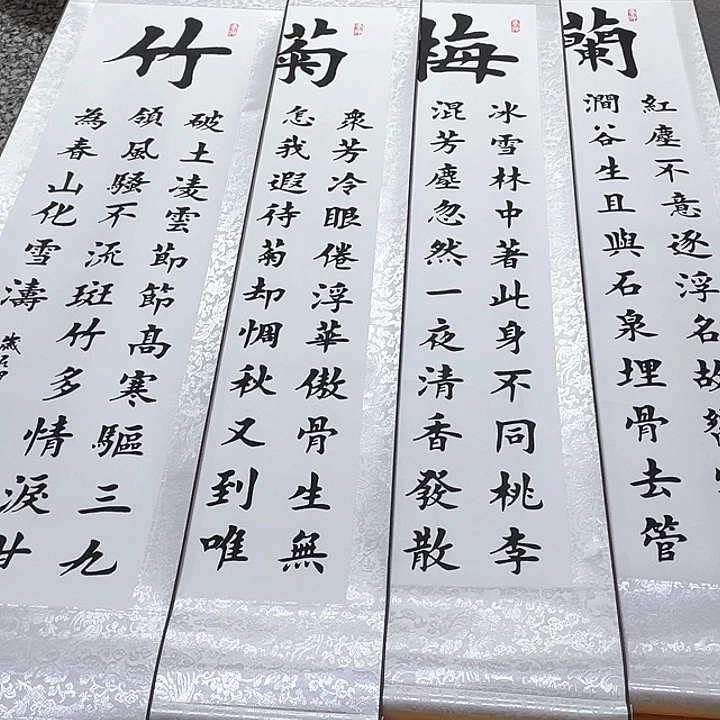 蘭
紅塵不意逐浮名故
澗谷生且與石泉埋骨去管
梅
冰雪林中著此身不同桃李
混芳塵忽然一夜清香發散
菊
衆芳冷眼倦浮華傲骨生無
怎我遐待菊却惆秋又到唯
竹
破土凌雲節節高寒驅三九
領風騷不流斑竹多情淚甘
為春山化雪濤